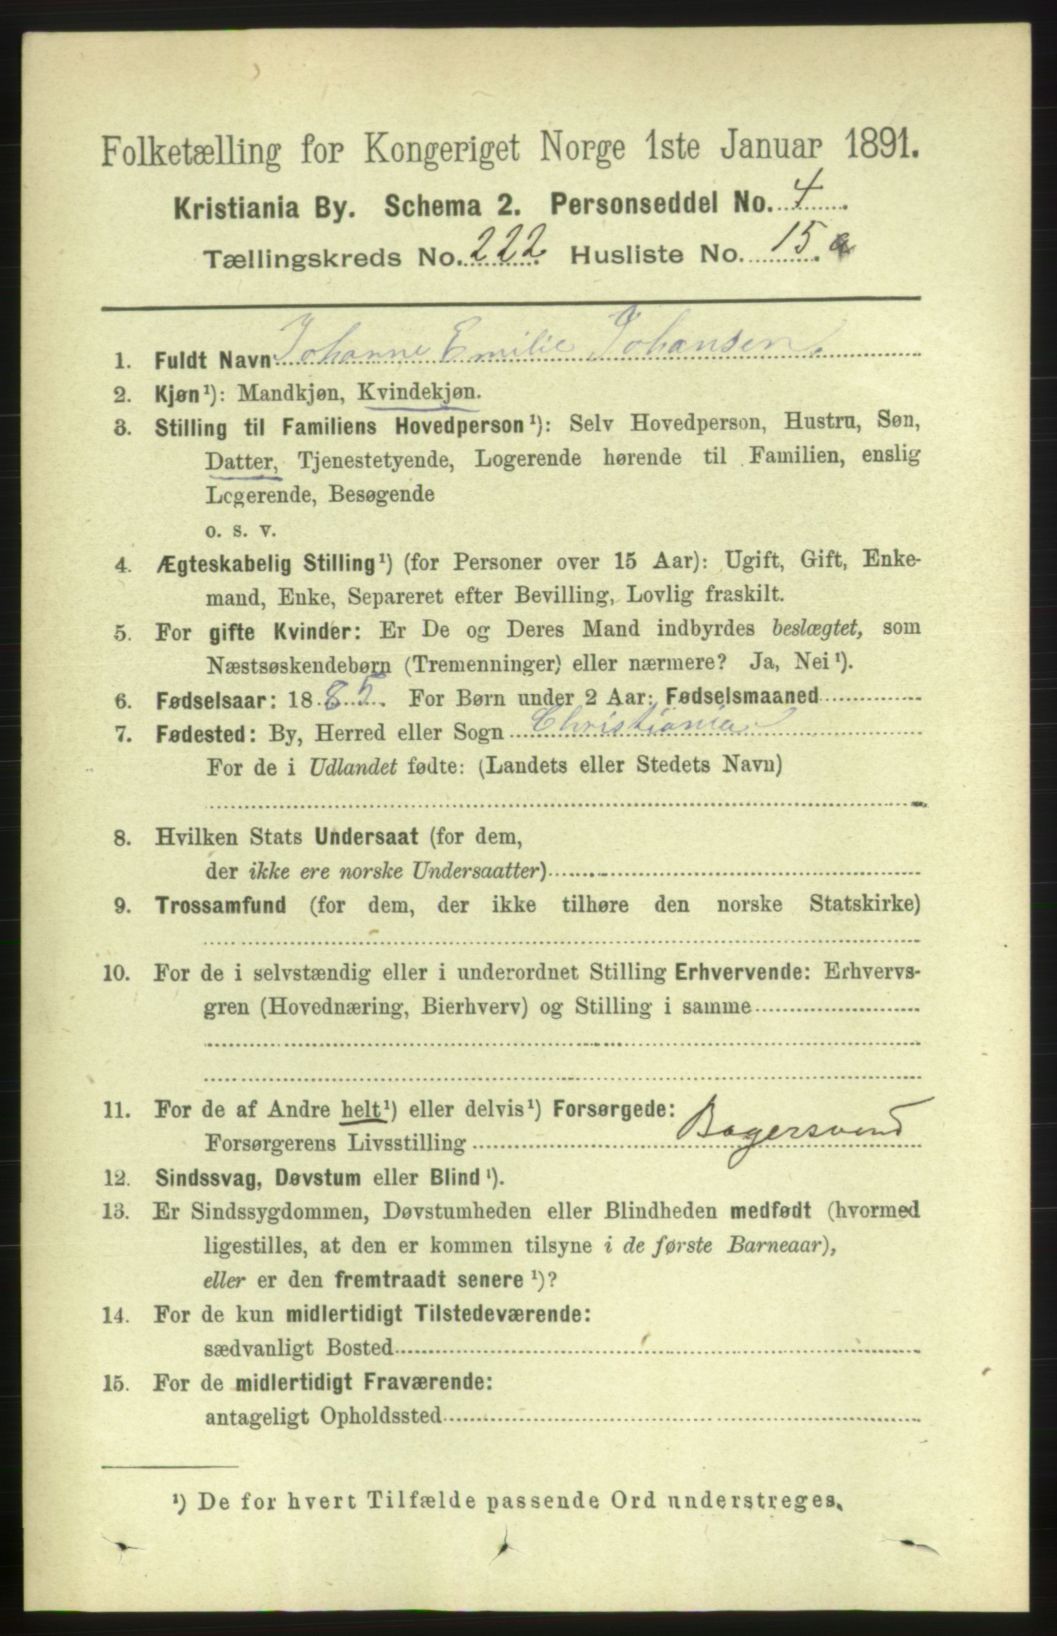 Folketælling for Kongeriget Norge 1ste Januar 1891.
Kristiania By. Schema 2. Personseddel No. 4
Tællingskreds No. 222 Husliste No. 15 a
1. Fuldt Navn Johanne Emilie Johansen.
2. Kjøn¹): Mandkjøn, Kvindekjøn.
3. Stilling til Familiens Hovedperson¹): Selv Hovedperson, Hustru, Søn,
Datter, Tjenestetyende, Logerende hørende til Familien, enslig
Logerende, Besøgende
o. s. v.
4. Ægteskabelig Stilling¹) (for Personer over 15 Aar): Ugift, Gift, Enke-
mand, Enke, Separeret efter Bevilling, Lovlig fraskilt.
5. For gifte Kvinder: Er De og Deres Mand indbyrdes beslægtet, som
Næstsøskendebørn (Tremenninger) eller nærmere? Ja, Nei¹).
6. Fødselsaar: 1885. For Børn under 2 Aar: Fødselsmaaned
7. Fødested: By, Herred eller Sogn Christiania
For de i Udlandet fødte: (Landets eller Stedets Navn)
8. Hvilken Stats Undersaat (for dem,
der ikke ere norske Undersaatter)
9. Trossamfund (for dem, der ikke tilhøre den norske Statskirke)
10. For de i selvstændig eller i underordnet Stilling Erhvervende: Erhvervs-
gren (Hovednæring, Bierhverv) og Stilling i samme
11. For de af Andre helt¹) eller delvis¹) Forsørgede:
Forsørgerens Livsstilling Bagersvend
12. Sindssvag, Døvstum eller Blind¹).
13. Er Sindssygdommen, Døvstumheden eller Blindheden medfødt (hvormed
ligestilles, at den er kommen tilsyne i de første Barneaar),
eller er den fremtraadt senere¹)?
14. For de kun midlertidigt Tilstedeværende:
sædvanligt Bosted
15. For de midlertidigt Fraværende:
antageligt Opholdssted
¹) De for hvert Tilfælde passende Ord understreges.